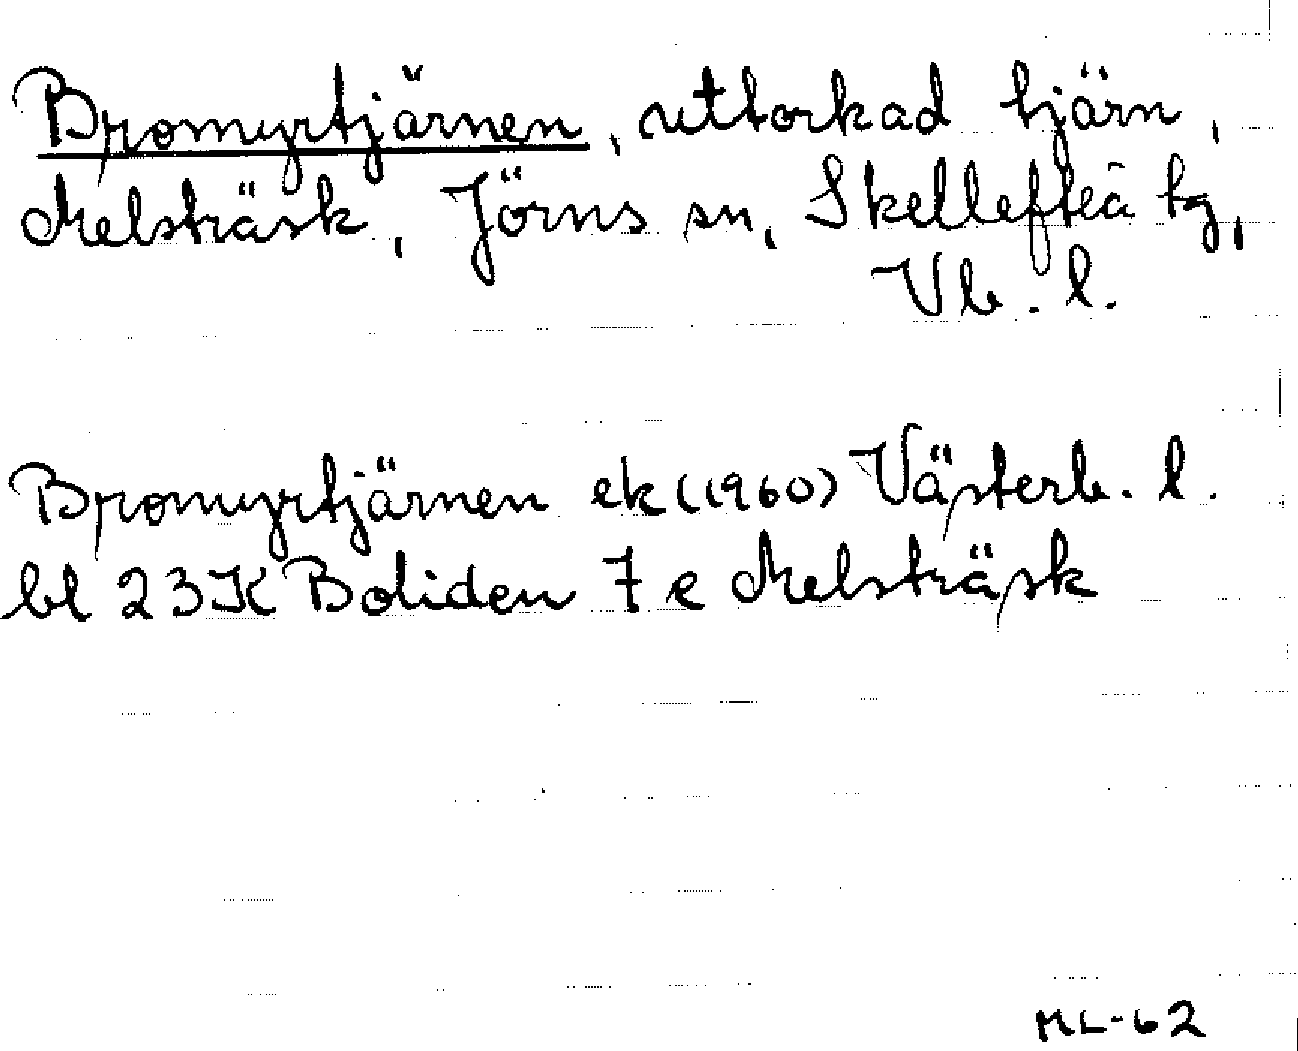 Bromyrtjärnen, uttorkad tjärn,
Melsträsk, Jörns sn, Skellefteå tg,
Vb. l.
Bromyrtjärnen ek (1960) Västerb. l.
bl 23K Boliden 7 e Melsträsk
ML-62